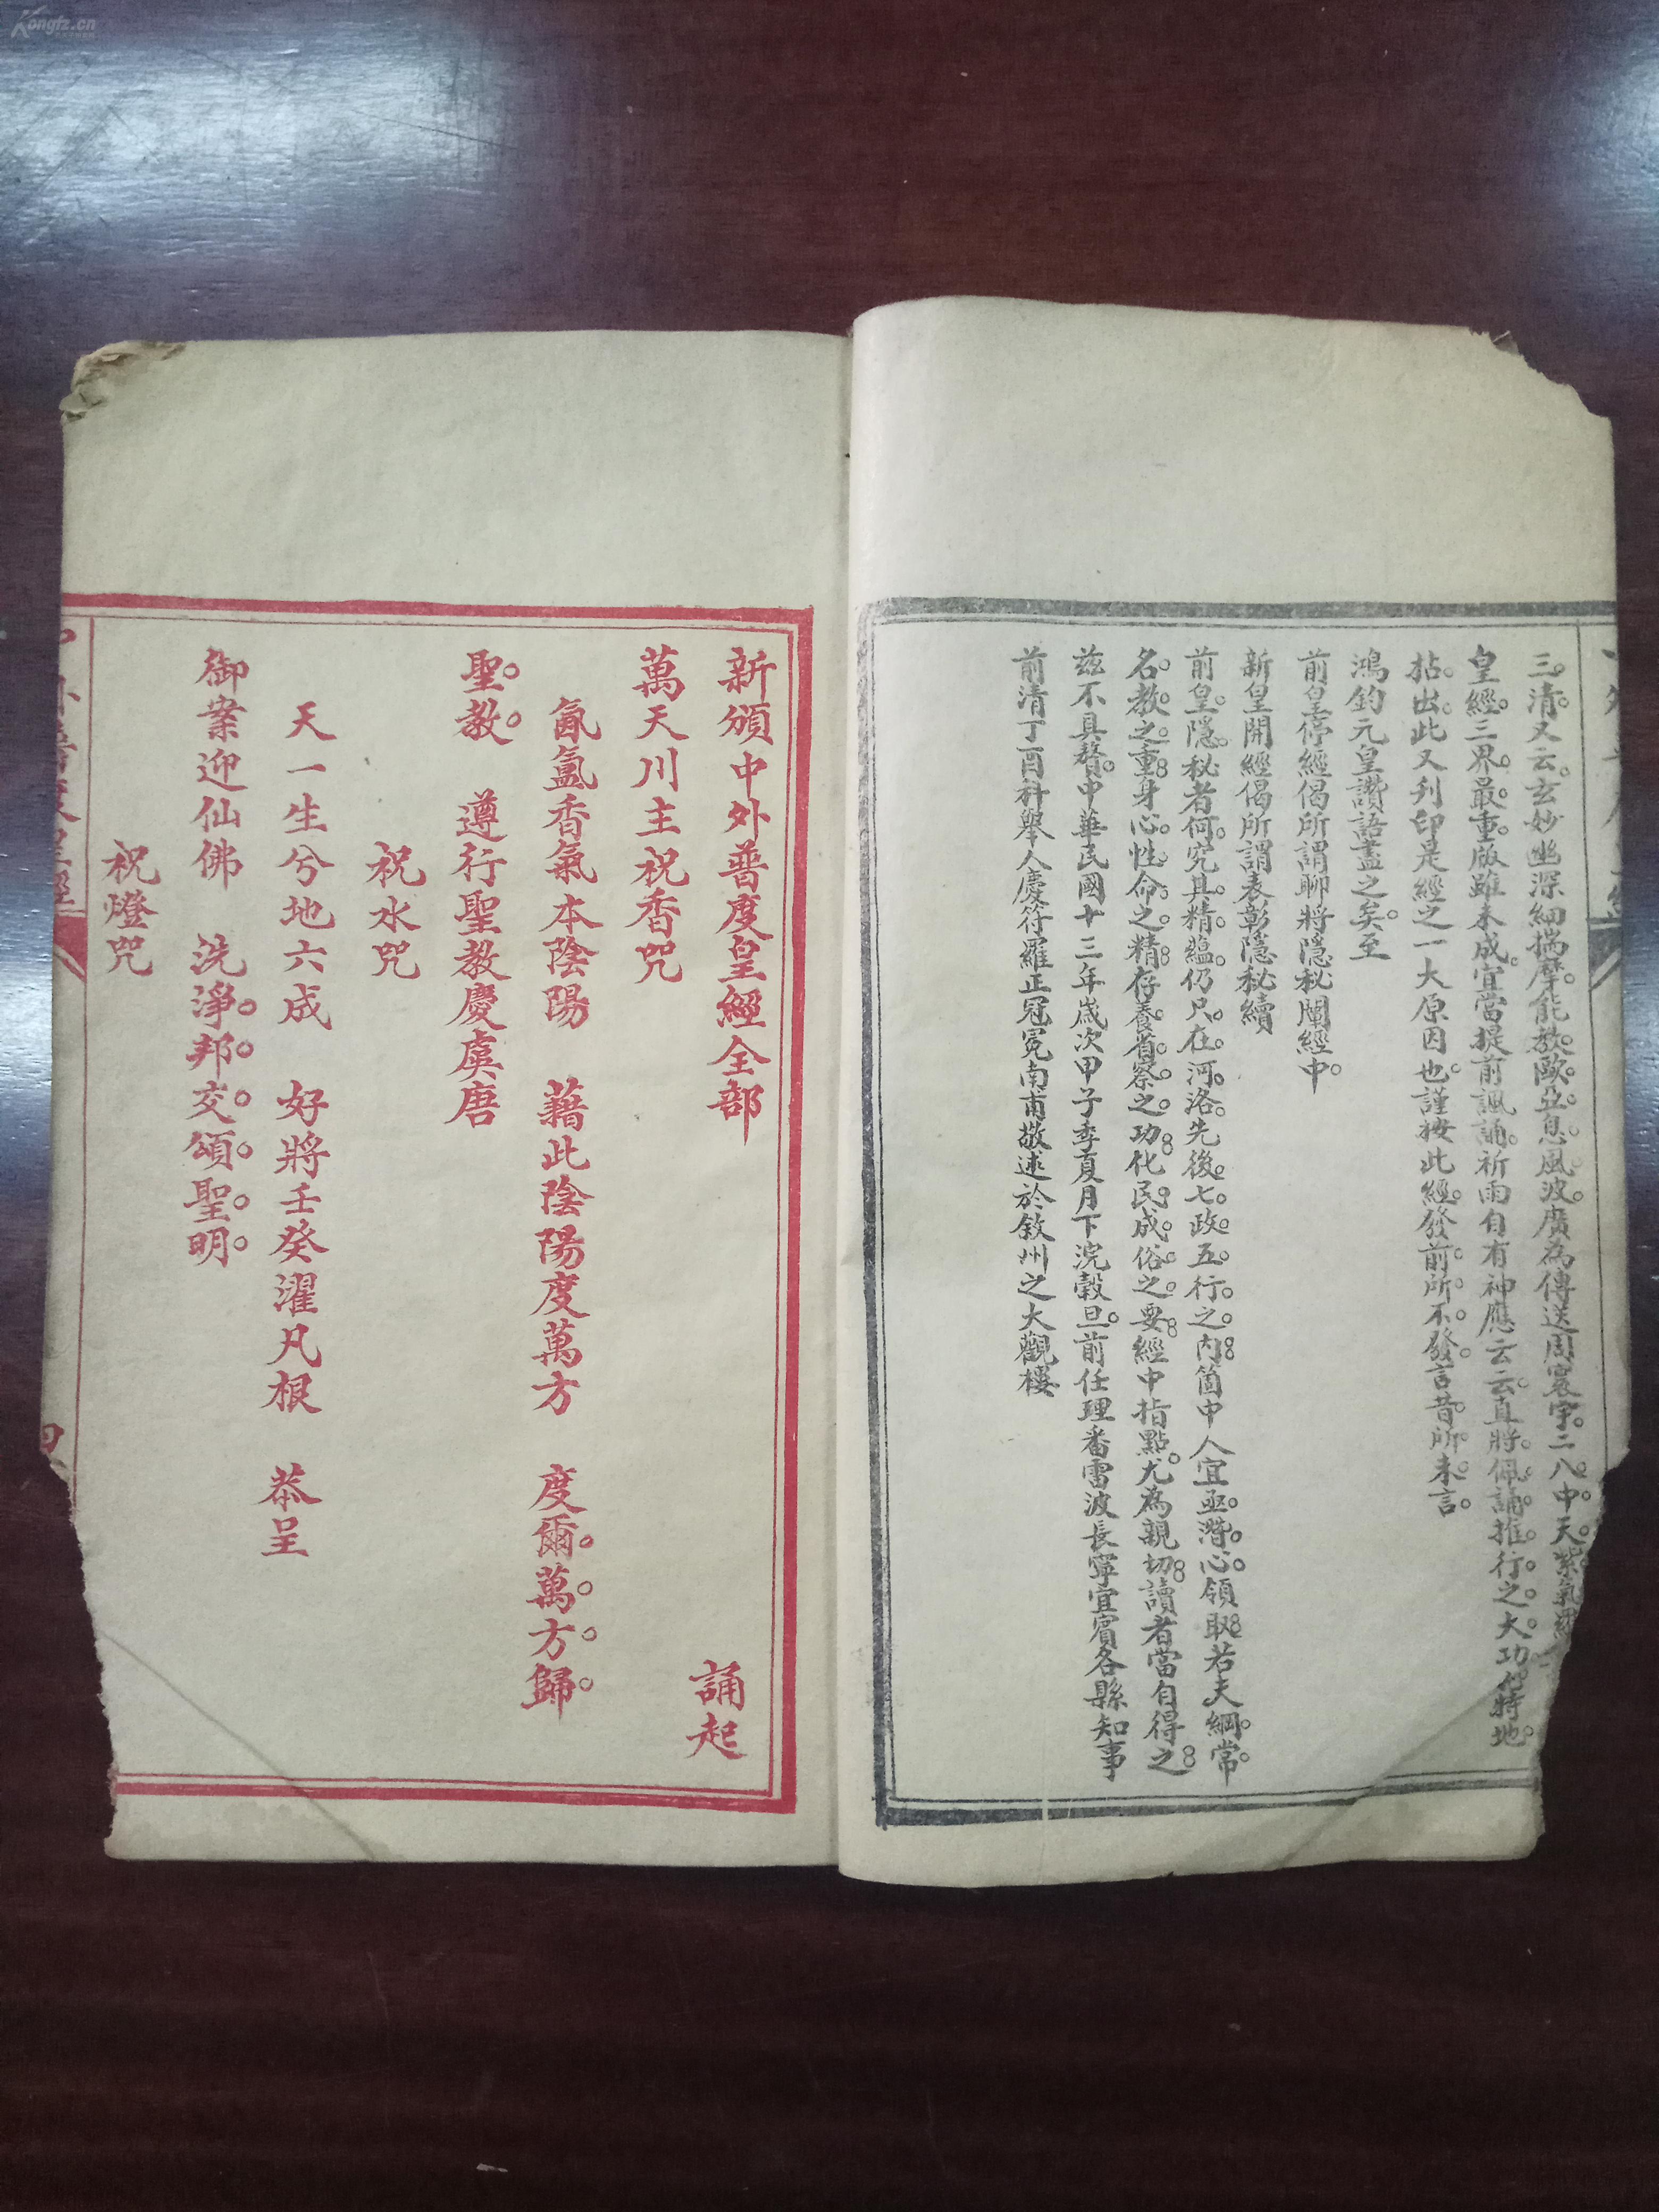 三清又云玄妙幽深細揣摩能教歐亞息風波廣為傳送周寰宇二八中天紫氣
皇經三界最重版雖未成宜當提前諷誦祈雨自有神應云云直將佩誦推行之大功化特地
拈出此又刋印是經之一大原因也謹按此經發前所不發言昔所未言
鴻鈞元皇讚語盡之矣至
前皇停經偈所謂聊將隱秘闡經中
新皇開經偈所謂表彰隱秘續
前皇隱秘者何究其精蘊仍只在河洛先後七政五行之內箇中人宜亟潛心領取若夫綱常
名教之重身心性命之精存養省察之功化民成俗之要經中指點尤為親切讀者當自得之
茲不具贅中華民國十三年歲次甲子季夏月下浣穀旦前任理番雷波長寧宜賓各縣知事
前清丁酉科舉人慶符羅正冠冕南甫敬述於敘州之大觀樓
新頒中外普度皇經全部 誦起
萬天川主祝香咒
氤氳香氣本陰陽 藉此陰陽度萬方 度爾萬方歸
聖教 遵行聖教慶虞唐
祝水咒
天一生兮地六成 好將壬癸濯凡根 恭呈
御案迎仙佛 洗淨邦交頌聖明
祝燈咒
四
Kongfz.cn